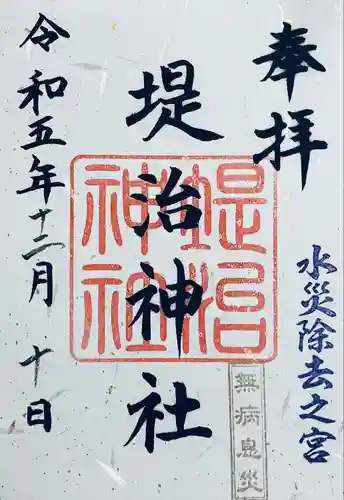 奉拝
水災除去之宮
無病息災
堤治神社
堤治神社
令和五年十二月十日